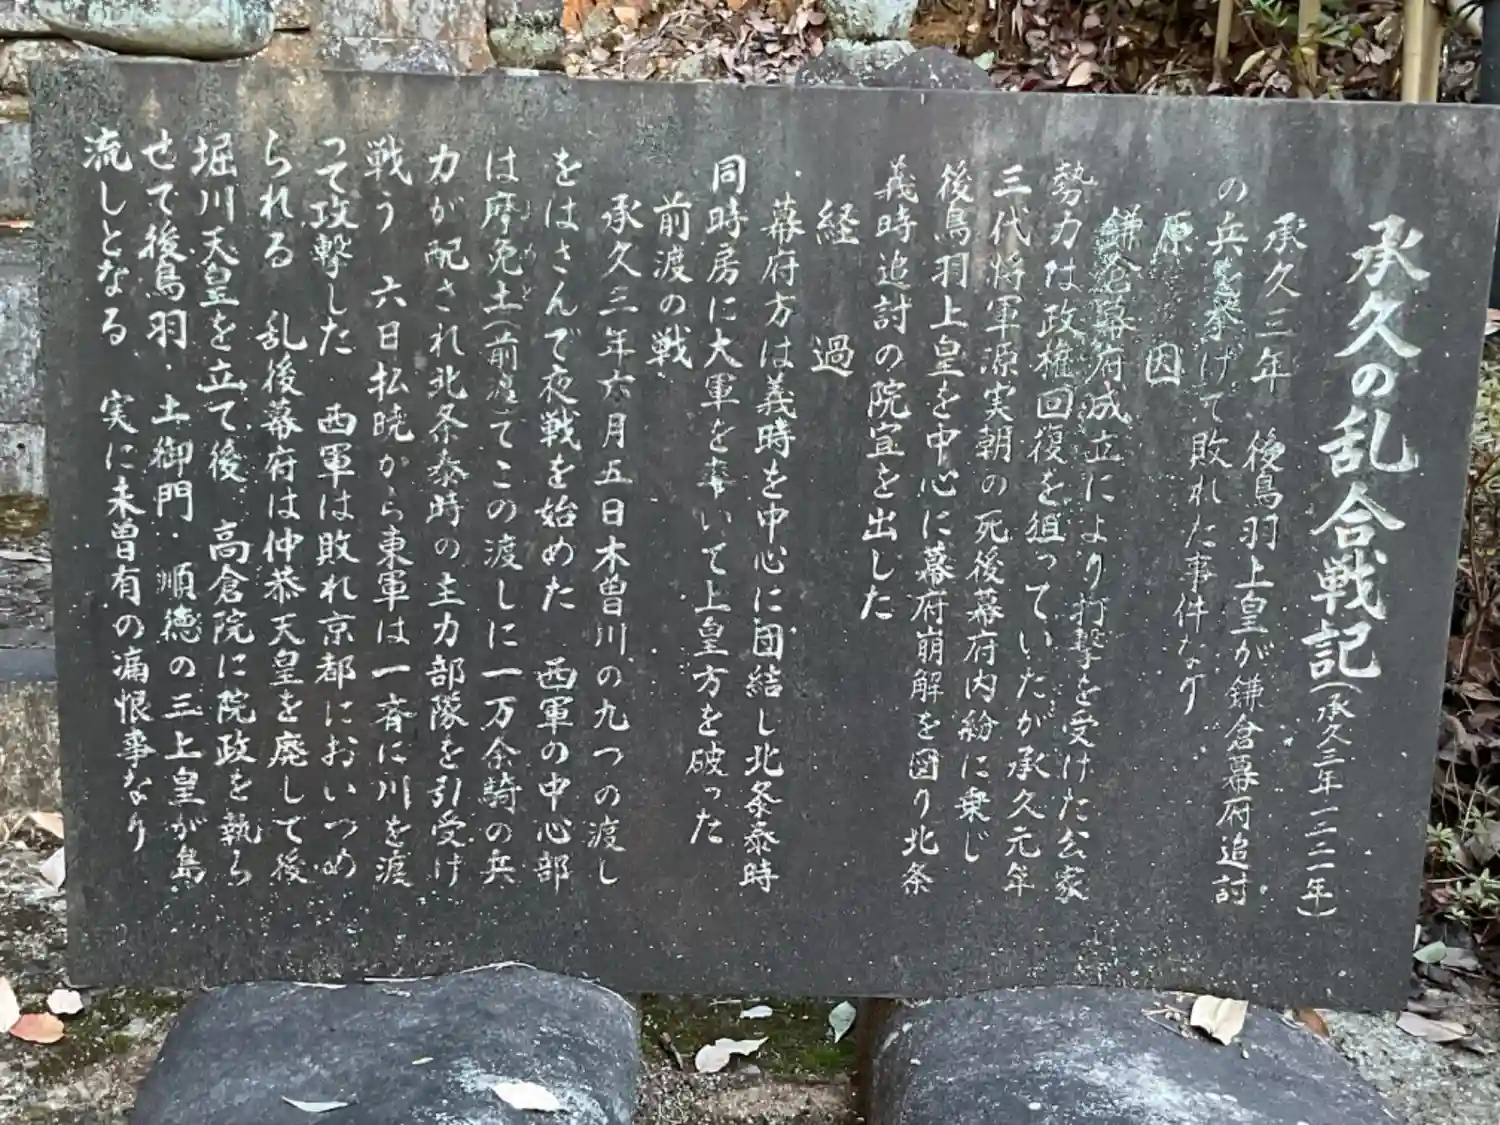 承久の乱合戦記(承久三年一二二一年)
承久三年 後鳥羽上皇が鎌倉幕府追討
の兵を挙げて敗れた事件なり
原因
鎌倉幕府成立により打撃を受けた公家
勢力は政権回復を狙っていたが承久元年
三代将軍源実朝の死後幕府内紛に乗じ
後鳥羽上皇を中心に幕府崩解を図り北条
義時追討の院宣を出した
経過
幕府方は義時を中心に団結し北条泰時
同時房に大軍を率いて上皇方を破った
前渡の戦
承久三年六月五日木曽川の九つの渡し
をはさんで夜戦を始めた 西軍の中心部
は摩免土(前渡)でこの渡しに一万余騎の兵
力が配され北条泰時の主力部隊を引受け
戦う 六日払暁から東軍は一斉に川を渡
って攻撃した 西軍は敗れ京都においつめ
られる 乱後幕府は仲恭天皇を廃して後
堀川天皇を立て後 高倉院に院政を執ら
せて後鳥羽・土御門・順徳の三上皇が島
流しとなる 実に未曽有の痛恨事なり